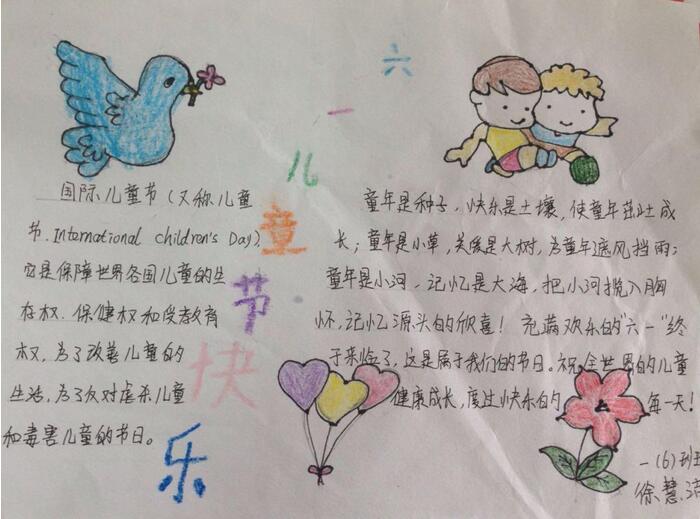 六
一
儿
童
节
快
乐
国际儿童节(又称儿童
节.International children's Day)
它是保障世界各国儿童的生
存权.保健权和受教育
权,为了改善儿童的
生活,为了反对虐杀儿童
和毒害儿童的节日。
童年是种子,快乐是土壤,使童年茁壮成
长;童年是小草,关爱是大树,为童年遮风挡雨;
童年是小河,记忆是大海,把小河揽入胸
怀,记忆源头的欣喜!充满欢乐的"六一"终
于来临了,这是属于我们的节日。祝全世界的儿童
健康成长,度过快乐的 每一天!
一(6)班
徐慧洁